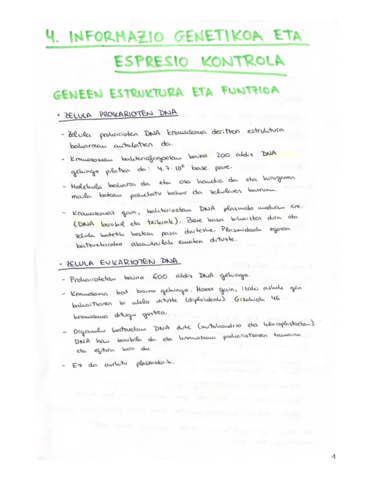 4. INFORMAZIO GENETIKOA ETA
ESPRESIO KONTROLA
GENEEN ESTRUKTURA ETA FUNTZIOA
· ZELULA PROKARIOTEN DNA
- Zelula prokarioten DNA kromosoma deritzon estruktura
bakarrean antolatzen da.
- Kromosoman bakteriofagoetan baino 200 aldiz DNA
gehiago pilatzen da: 4,7·10⁶ base pare.
- Molekula bakarra da eta oso handia da eta hirugarren
maila batean paketatu behar da zelularen barruan.
- Kromosomaz gain, bakterioetan DNA plasmido moduan ere
(DNA borobil eta txikiak). Bere kasa bikoizten dira eta
zelula batetik bestera pasa daitezke. Plasmidoek egoera
batzuetarako abantailak ematen dituzte.
· ZELULA EUKARIOTEN DNA
- Prokariotetan baino 600 aldiz DNA gehiago.
- Kromosoma bat baino gehiago. Horrez gain, izaki askok gen
bakoitzaren bi alelo dituzte (diploideak). Gizakiok 46
kromosoma ditugu guztira.
- Organulu batzuetan DNA dute (mitokondrio eta kloroplastoetan)
DNA hau borobila da eta kromosoma prokariotoaren tamaina
eta egitura izan du.
- Ez da aurkitu plasmidorik.
1